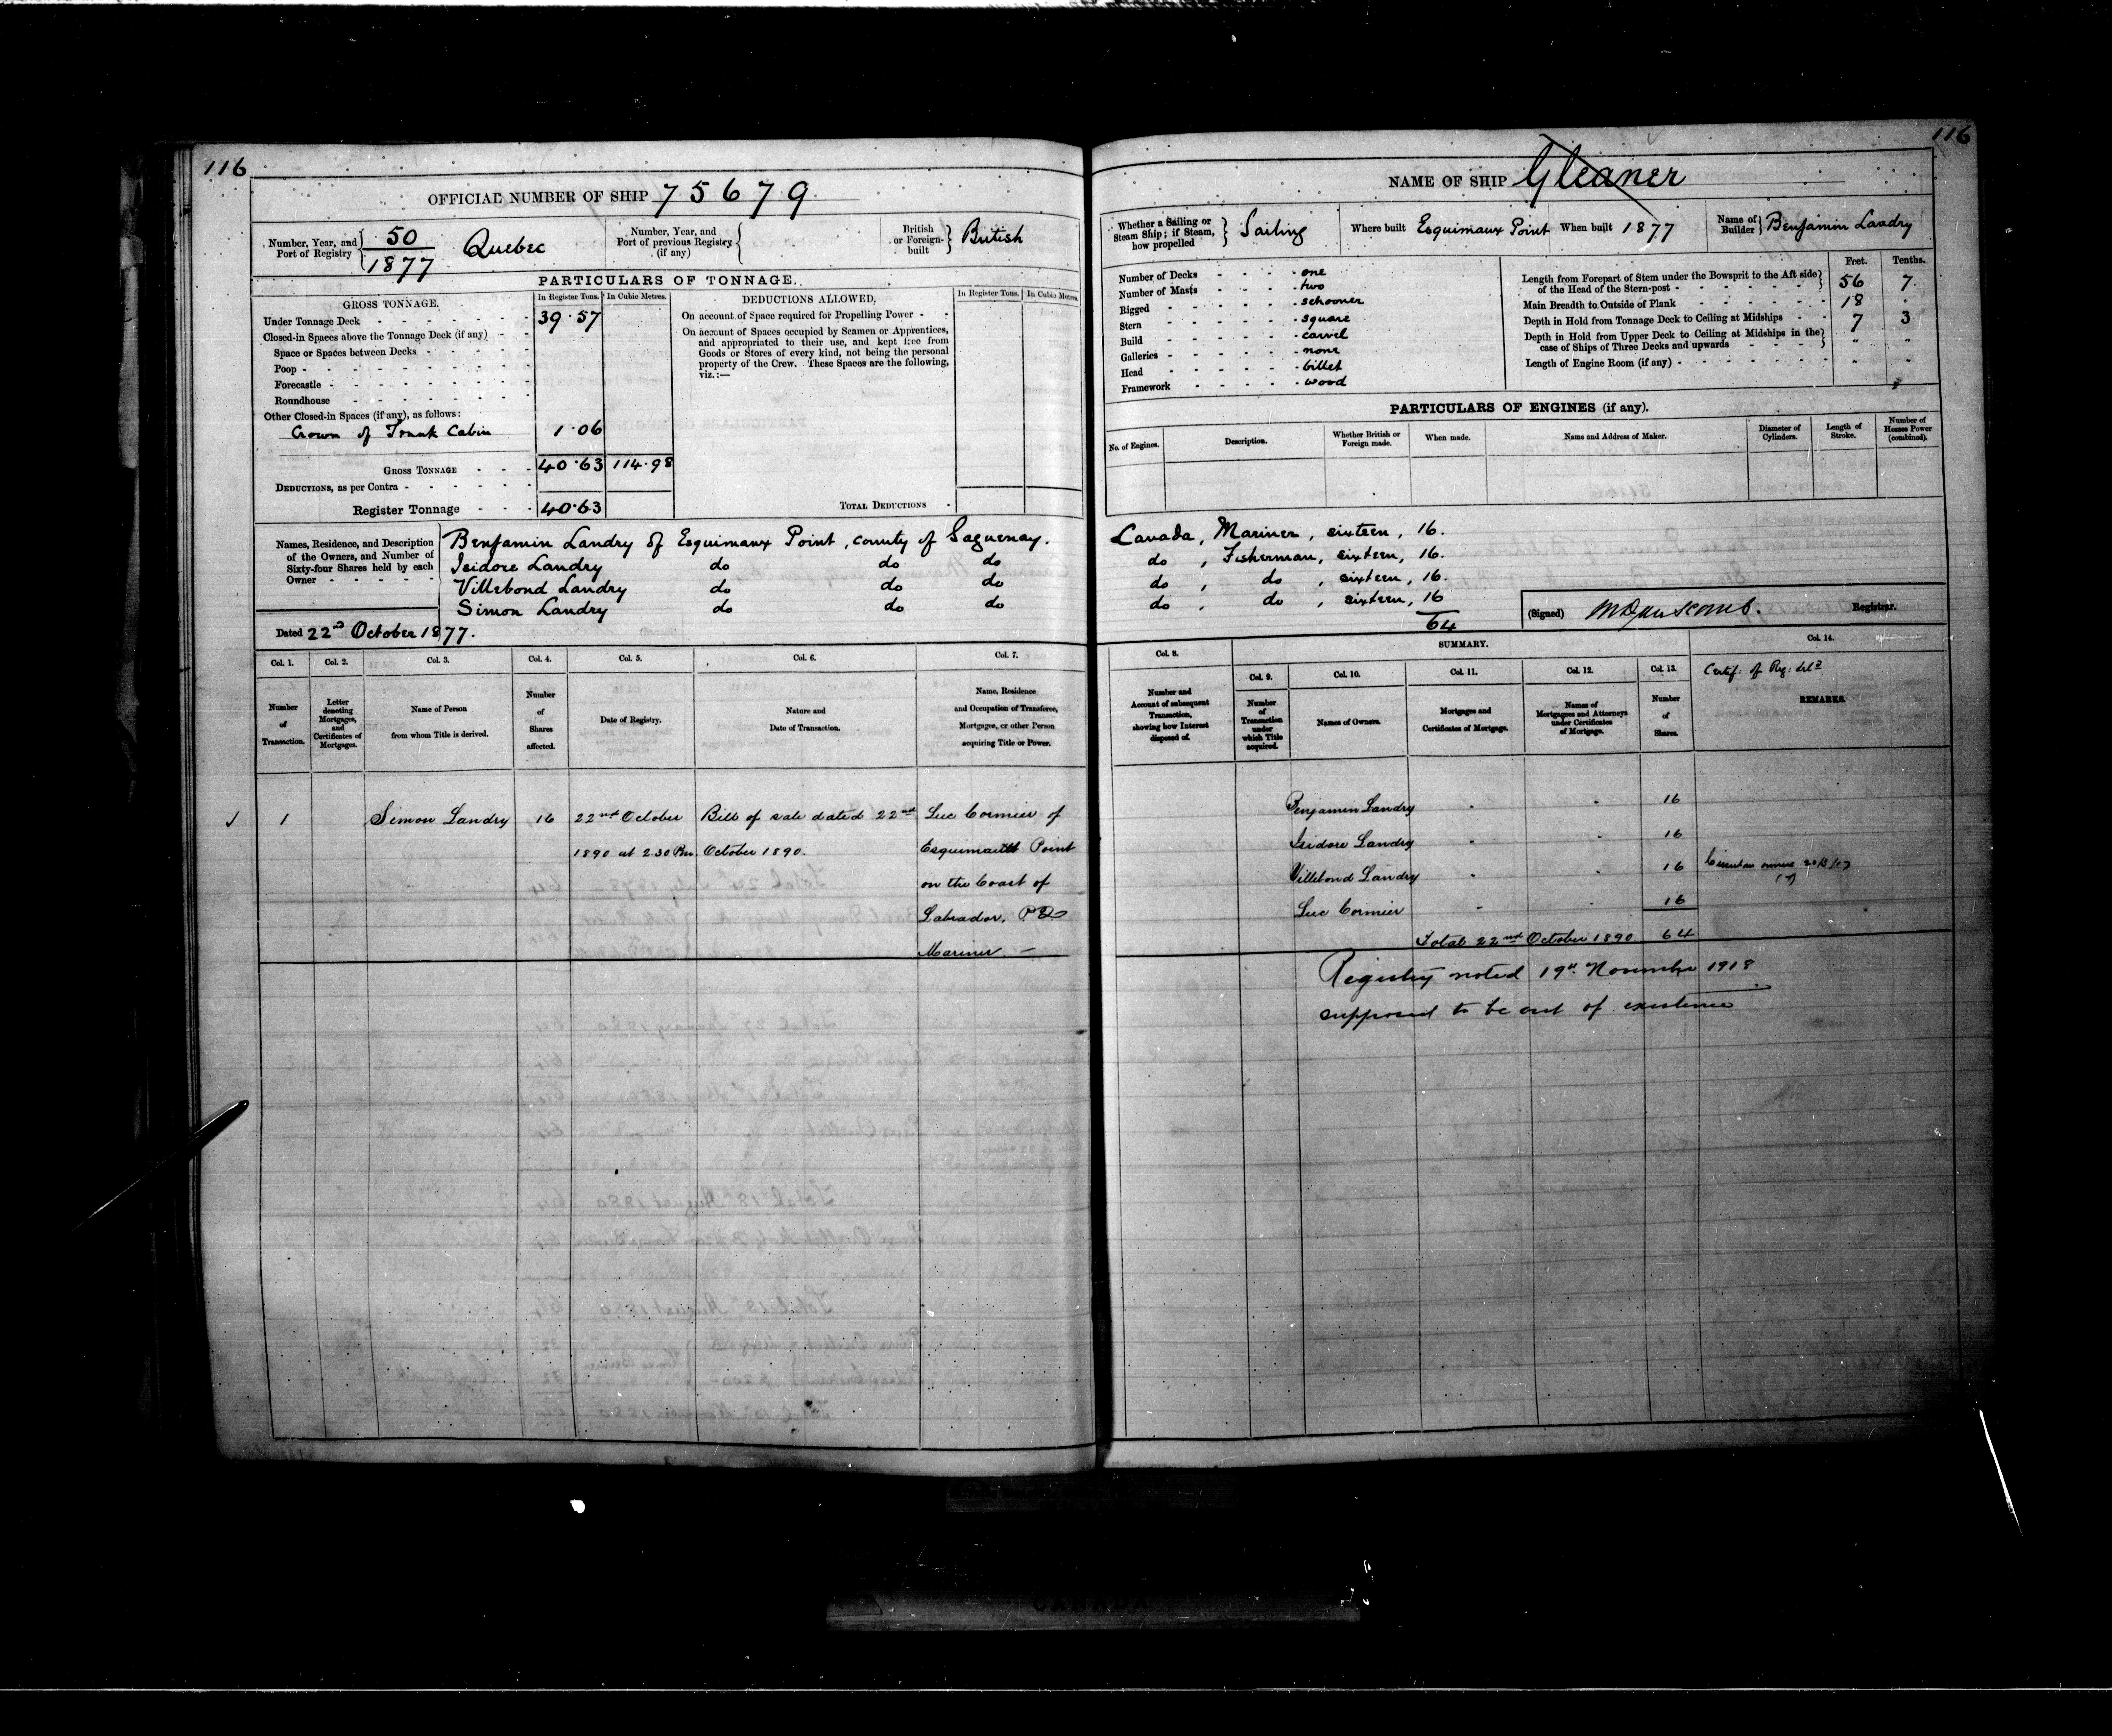 116
OFFICIAL NUMBER OF SHIP 75679
Number, Year, and Port of Registry 50/1877 Quebec
Number, Year, and Port of previous Registry (if any)
British or Foreign-built British
PARTICULARS OF TONNAGE.
GROSS TONNAGE. In Register Tons. In Cubic Metres.
Under Tonnage Deck 39.57
Closed-in Spaces above the Tonnage Deck (if any)
Space or Spaces between Decks
Poop
Forecastle
Roundhouse
Other Closed-in Spaces (if any), as follows:
Crown of Trunk Cabin 1.06
GROSS TONNAGE 40.63 114.98
DEDUCTIONS, as per Contra
Register Tonnage 40.63
DEDUCTIONS ALLOWED. In Register Tons. In Cubic Metres.
On account of Space required for Propelling Power
On account of Spaces occupied by Seamen or Apprentices,
and appropriated to their use, and kept free from
Goods or Stores of every kind, not being the personal
property of the Crew. These Spaces are the following,
viz.:—
TOTAL DEDUCTIONS
Names, Residence, and Description
of the Owners, and Number of
Sixty-four Shares held by each
Owner
Benjamin Landry of Esquimaux Point, county of Saguenay.
Isidore Landry do do do
Villebond Landry do do do
Simon Landry do do do
Dated 22nd October 1877.
Col. 1. Col. 2. Col. 3. Col. 4. Col. 5. Col. 6. Col. 7.
Number of Transaction.
Letter denoting Mortgages, and Certificates of Mortgages.
Name of Person from whom Title is derived.
Number of Shares affected.
Date of Registry.
Nature and Date of Transaction.
Name, Residence and Occupation of Transferee, Mortgagee, or other Person acquiring Title or Power.
1 Simon Landry 16 22nd October Bill of sale dated 22nd Luc Cormier of
1890 at 2.30 Pm. October 1890. Esquimaux Point
on the Coast of
Labrador, PQ
Mariner. —
116
NAME OF SHIP Gleaner
Whether a Sailing or Steam Ship; if Steam, how propelled Sailing
Where built Esquimaux Point When built 1877
Name of Builder Benjamin Landry
Number of Decks one
Number of Masts two
Rigged schooner
Stern square
Build carvel
Galleries none
Head billet
Framework wood
Feet. Tenths.
Length from Forepart of Stem under the Bowsprit to the Aft side
of the Head of the Stern-post 56 7
Main Breadth to Outside of Plank 18 .
Depth in Hold from Tonnage Deck to Ceiling at Midships 7 3
Depth in Hold from Upper Deck to Ceiling at Midships in the
case of Ships of Three Decks and upwards " "
Length of Engine Room (if any) " "
PARTICULARS OF ENGINES (if any).
No. of Engines. Description. Whether British or Foreign made. When made. Name and Address of Maker. Diameter of Cylinders. Length of Stroke. Number of Horses Power (combined).
Canada, Mariner, sixteen, 16.
do, Fisherman, sixteen, 16.
do, do, sixteen, 16.
do, do, sixteen, 16
64
(Signed) Registrar.
Col. 8. SUMMARY. Col. 14.
Col. 9. Col. 10. Col. 11. Col. 12. Col. 13.
Certif: of Reg:
REMARKS.
Number and Account of subsequent Transaction, showing how Interest disposed of.
Number of Transaction under which Title acquired.
Names of Owners.
Mortgages and Certificates of Mortgage.
Names of Mortgagees and Attorneys under Certificates of Mortgage.
Number of Shares.
Benjamin Landry 16
Isidore Landry 16
Villebond Landry 16
Luc Cormier 16
Total 22nd October 1890 64
Registry noted 19th November 1918
supposed to be out of existence
CANADA